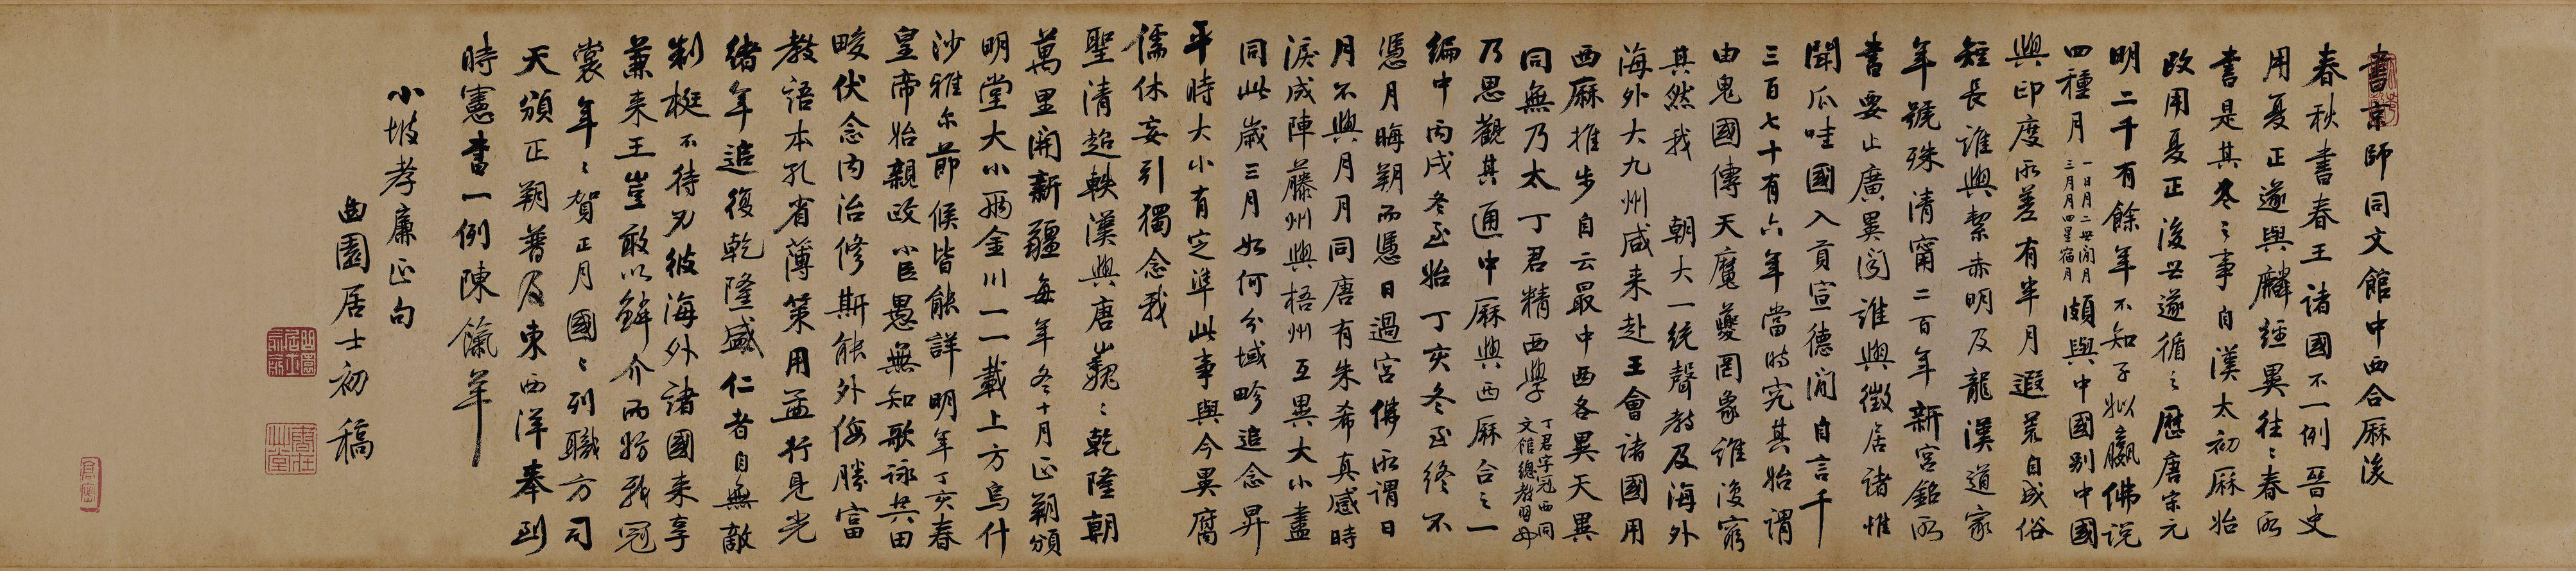 書京師同文館中西合厤後
春秋書春王諸國不一例晉史
用夏正遂與麟經異徃〻春所
書是其冬之事自漢太初厤始
改用夏正後世遂循之歷唐宗元
明二千有餘年不知子姒嬴佛説
四種月一日月二世閒月三月月四星宿月頗與中國别中國
與印度所差有半月遐荒自成俗
短長誰與絜赤明及龍漢道家
年號殊清甯二百年新宮銘所
書要止廣異聞誰與徵居諸惟
聞爪哇國入貢宣德閒自言千
三百七十有六年當時究其始謂
由鬼國傳天魔夔罔象誰復窮
其然我 朝大一統聲教及海外
海外大九州咸来赴王會諸國用
西厤推步自云最中西各異天異
同無乃太丁君精西學丁君字冠西同文館總教習毋
乃思觀其通中厤與西厤合之一
編中丙戌冬至始丁亥冬至終不
憑月晦朔而憑日過宮佛所謂日
月不與月月同唐有朱希真感時
淚成陣藤州與梧州互異大小盡
同此歲三月如何分域畛追念昇
平時大小有定準此事與今異腐
儒休妄引獨念我
聖清超軼漢與唐巍〻乾隆朝
萬里開新疆每年冬十月正朔頒
明堂大小兩金川一一載上方烏什
沙雅尔節候皆能詳明年丁亥春
皇帝始親政小臣愚無知歌詠共田
畯伏念內治修斯能外侮勝富
教語本孔省薄策用孟行見光
緒年追復乾隆盛仁者自無敵
制梃不待刃彼海外諸國来享
兼来王豈敢以鱗介而妨我冠
裳年〻賀正月國〻列職方司
天頒正朔普及東西洋奉到
時憲書一例陳餼羊
小坡孝廉正句
曲園居士初稿